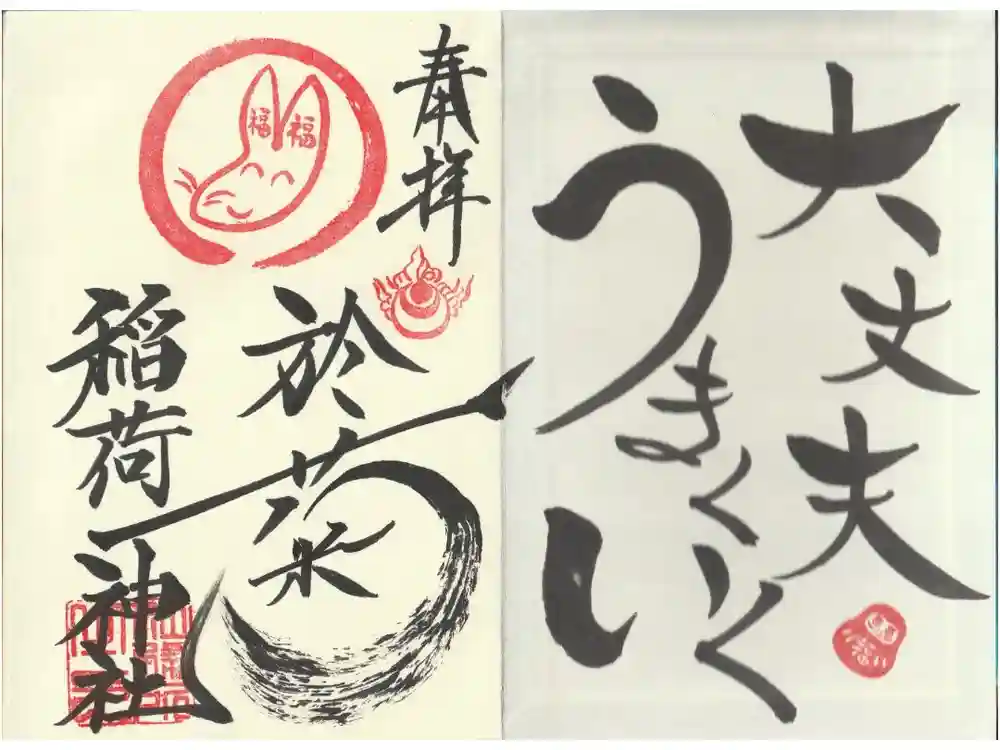 大丈夫
うまくいく
福
奉拝
福福
於菊
稲荷神社